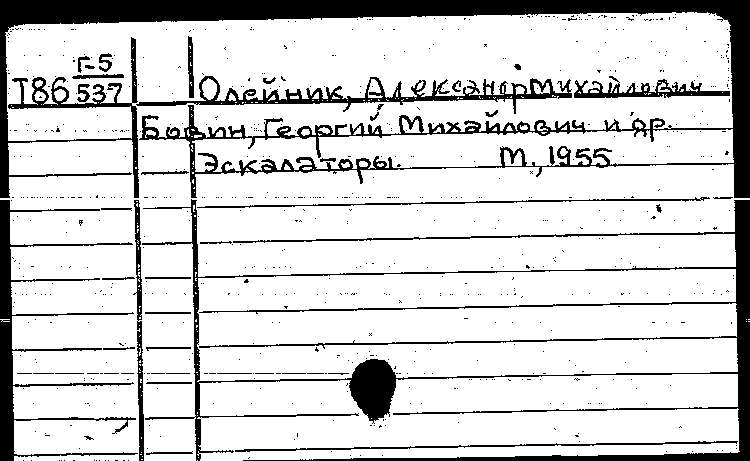 Г-5
Т86 537 Олейник, Александр Михайлович
Бовин, Георгий Михайлович и др.
Эскалаторы. М., 1955